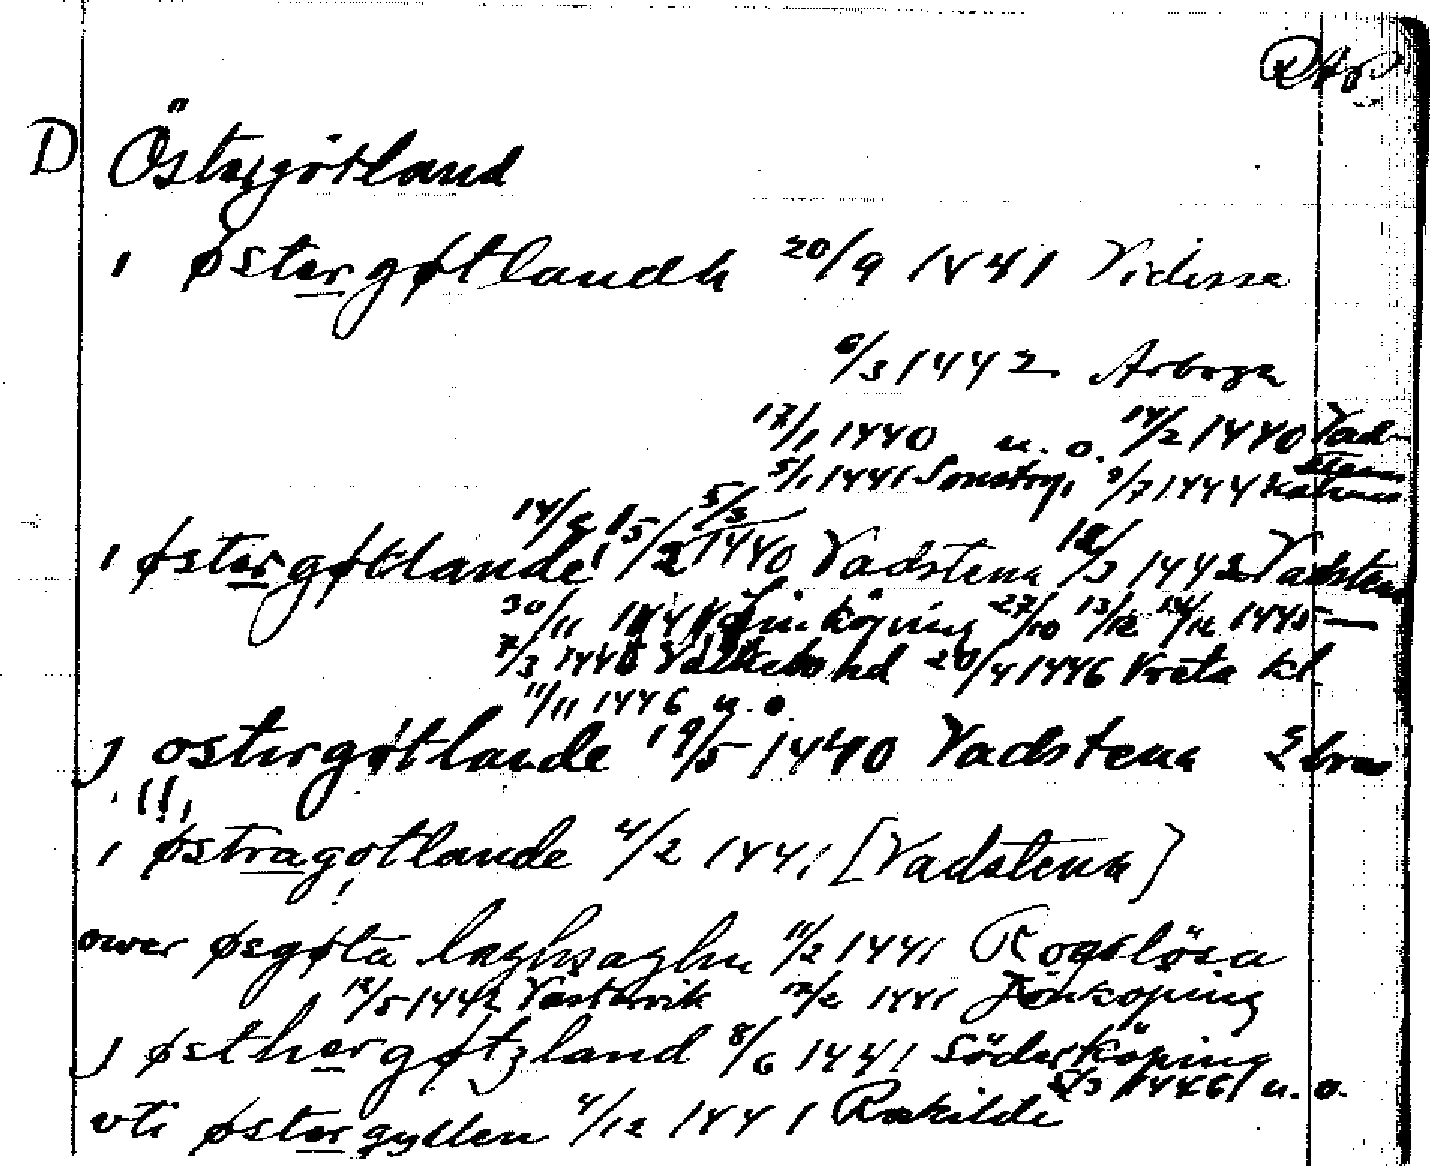 D Östergötland
i østergøtlandh 20/9 1441 Vidisse
6/3 1442 Arboga
17/1 1440 u. o. 14/2 1440 Vad-
5/1 1441 stena
i østergøtlande 15/2 5/3 1440 Vadstena 18/3 1442 Vadstena
30/11 Linköping 27/10 13/12 1445 —
7/3 1440 hd 20/4 1446 Vreta kl
11/11 1446 u. o.
j ostergøtlande 19/5 1440 Vadstena
!!!
i østragøtlande 4/2 1441 [Vadstena]
!
ower øsgøta laghsaghu 11/2 1441 Rogslösa
12/5 1442 Västervik 12/2 1441 Jönköping
j østhergøtzland 8/6 1441 Söderköping
5/3 1446 u. o.
vti østergyllen 4/12 1441